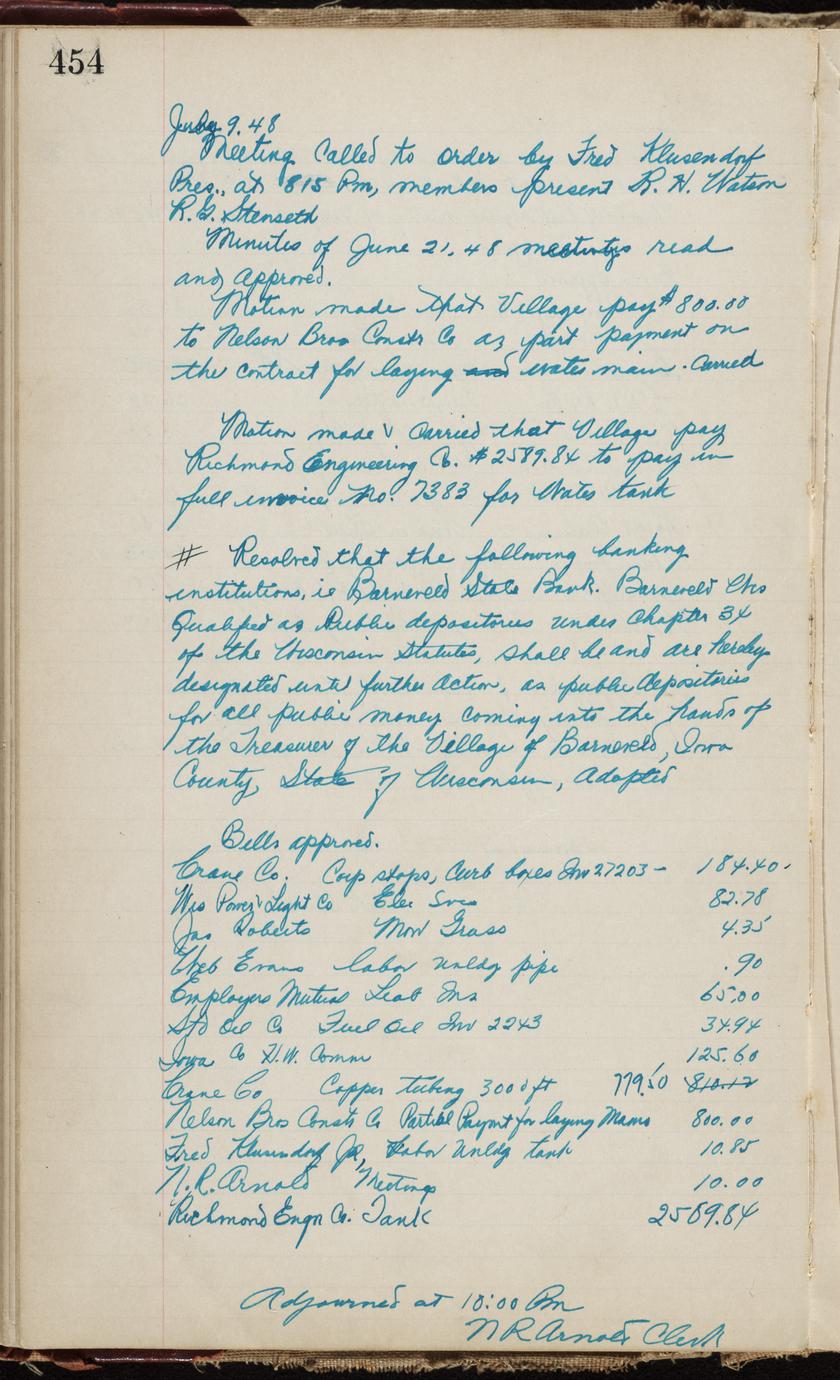 454
July 9. 48
Meeting Called to order by Fred Klusendorf
Pres., at 815 Pm, members present R. H. Watson
R. G. Stenseth
Minutes of June 21. 48 meetings read
and approved.
Motion made that Village pay $800.00
to Nelson Bros Constr Co as part payment on
the contract for laying and water main. Carried
Motion made & carried that Village pay
Richmond Engineering Co. $2589.84 to pay in
full invoice No. 7383 for Water tank
# Resolved that the following banking
institutions, ie Barneveld State Bank. Barneveld Wis
Qualified as Public depositories under Chapter 34
of the Wisconsin Statutes, shall be and are hereby
designated until further action, as public depositories
for all public money coming into the hands of
the Treasurer of the Village of Barneveld, Iowa
County, State of Wisconsin, Adopted
Bills approved.
Crane Co. Corp stops, Curb boxes Inv 27203 - 184.40.
Wis Power & Light Co Elec Svce 82.78
Jas Roberts Mow Grass 4.35
Web Evans labor unldg pipe .90
Employers Mutual Leab Ins 65.00
Std Oil Co Fuel Oil Inv 2243 34.94
Iowa Co H.W. Comm 125.60
Crane Co Copper tubing 3000 ft 779.50 810.12
Nelson Bros Constr Co Partial Paymt for laying Mains 800.00
Fred Klusendorf Jr, Labor Unldg tank 10.85
N. R. Arnold Meetings 10.00
Richmond Engr Co. Tank 2589.84
Adjourned at 10:00 Pm
N R Arnold Clerk